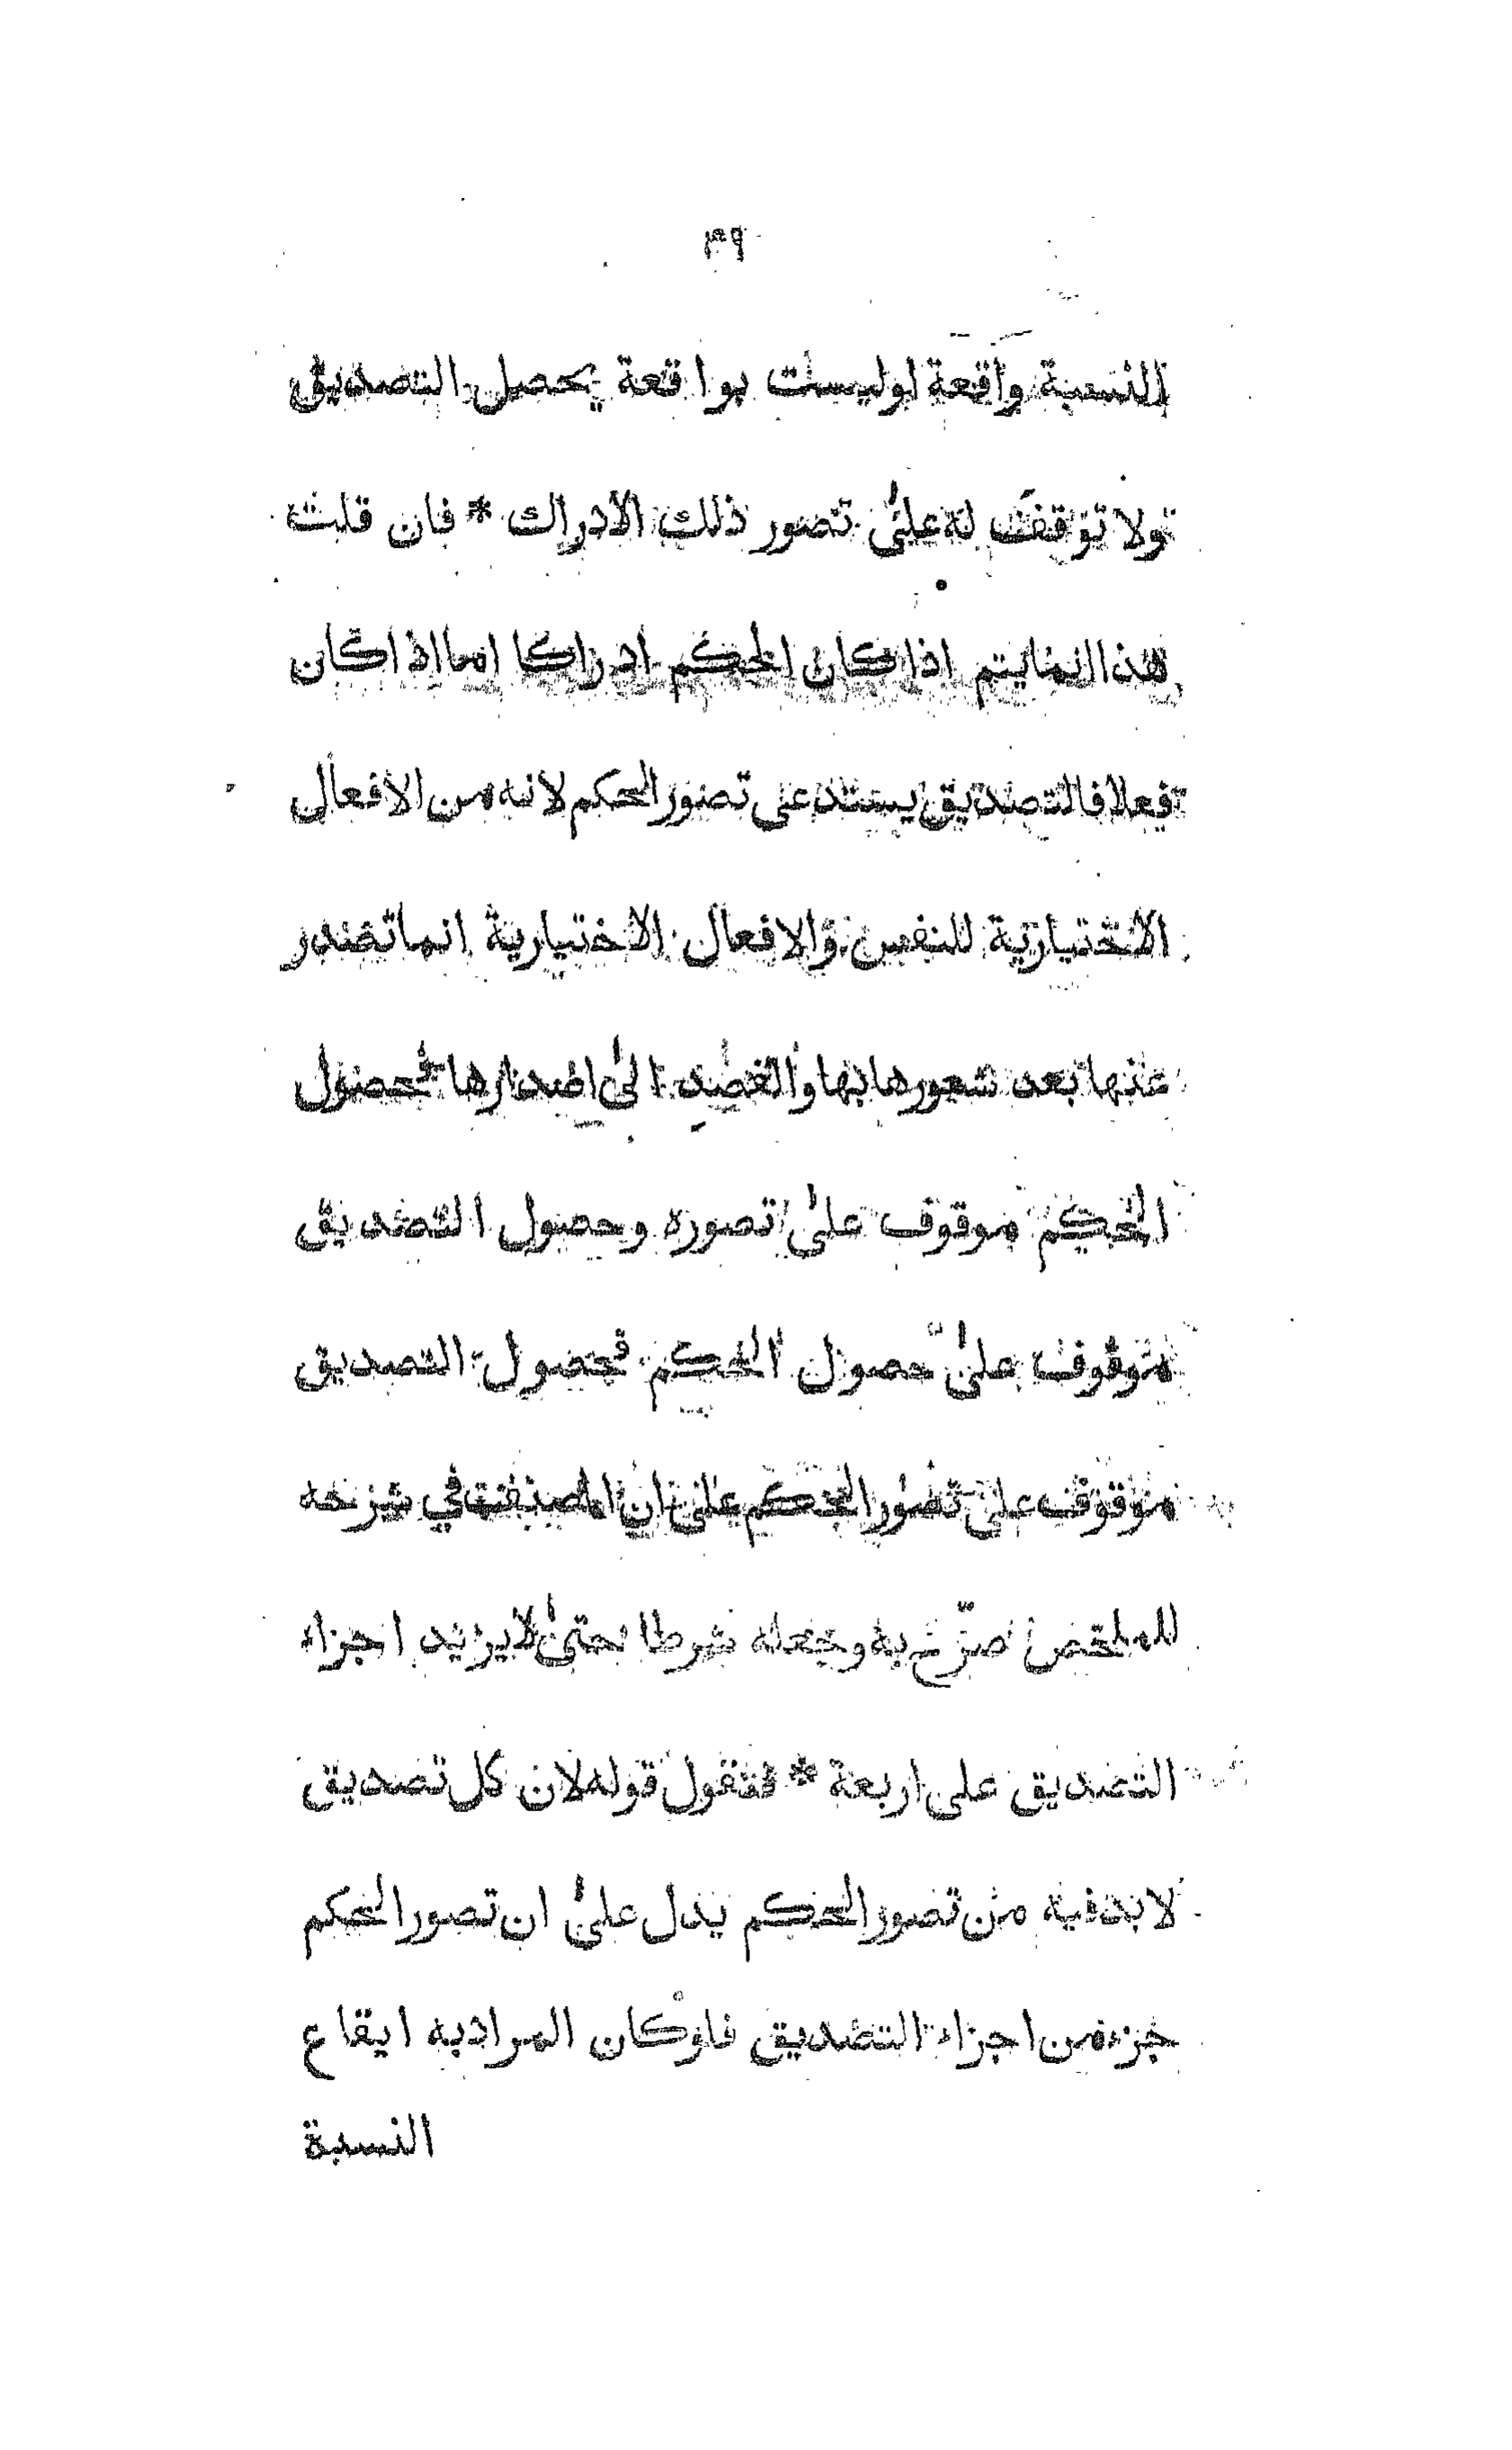 ٣٩
النسبة واقعة اوليست بواقعة يحصل التصديق
ولا توقف له على تصور ذلك الادراك * فان قلت
هذا انما يتم اذا كان الحكم ادراكا اما اذا كان
فعلا فالتصديق يستدعى تصور الحكم لانه من الافعال
الاختيارية للنفس والافعال الاختيارية انما تصدر
عنها بعد شعورها بها والقصد الى اصدارها فحصول
الحكم موقوف على تصوره وحصول التصديق
موقوف على حصول الحكم فحصول التصديق
موقوف على تصور الحكم على ان المصنف في شرحه
للملخص صرّح به وجعله شرطا حتى لا يزيد اجزاء
التصديق على اربعة * فنقول قوله لان كل تصديق
لا بد فيه من تصور الحكم يدل على ان تصور الحكم
جزء من اجزاء التصديق فلو كان المراد به ايقاع
النسبة